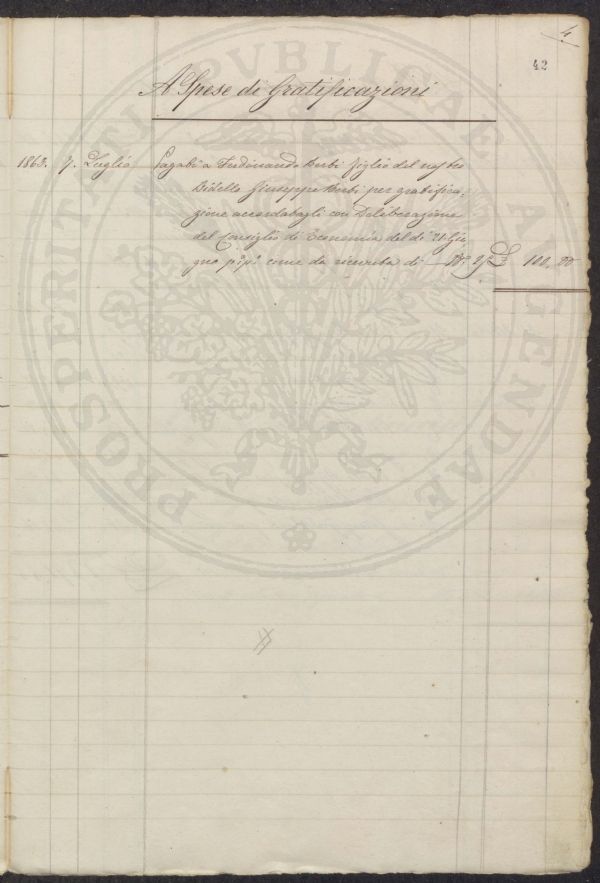 4
42
A Spese di Gratificazioni
1863. 7. Luglio Pagati a Ferdinando Berbi figlio del nostro
Bidello Giuseppe Berbi per gratifica-
zione accordatagli con Deliberazione
del Consiglio di Economia del dì 21 Giu
gno p.º p.º come da ricevuta di 100. 80
PROSPERITATI PUBLICAE AUGENDAE